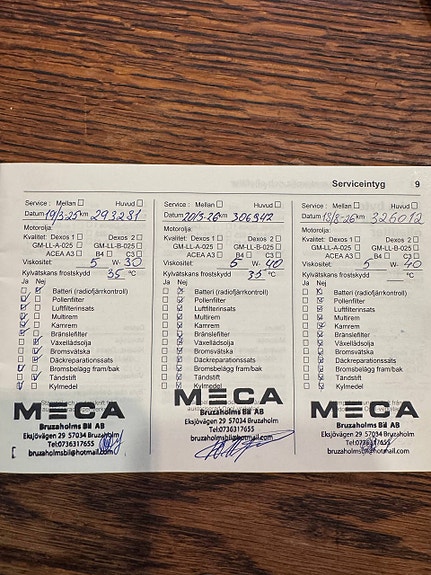 Serviceintyg 9
Service : Mellan Huvud
Datum 19/3-25 km 293281
Motorolja:
Kvalitet: Dexos 1 Dexos 2
GM-LL-A-025 GM-LL-B-025
ACEA A3 B4 C3
Viskositet: 5 W- 30
Kylvätskans frostskydd 35 °C
Ja Nej
Batteri (radiofjärrkontroll)
Pollenfilter
Luftfilterinsats
Multirem
Kamrem
Bränslefilter
Växellådsolja
Bromsvätska
Däckreparationssats
Bromsbelägg fram/bak
Tändstift
Kylmedel
MECA
Bruzaholms Bil AB
Eksjövägen 29 57034 Bruzaholm
Tel:0736317655
bruzaholmsbil@hotmail.com
Service : Mellan Huvud
Datum 20/5-26 km 306942
Motorolja:
Kvalitet: Dexos 1 Dexos 2
GM-LL-A-025 GM-LL-B-025
ACEA A3 B4 C3
Viskositet: 5 W- 40
Kylvätskans frostskydd 35 °C
Ja Nej
Batteri (radiofjärrkontroll)
Pollenfilter
Luftfilterinsats
Multirem
Kamrem
Bränslefilter
Växellådsolja
Bromsvätska
Däckreparationssats
Bromsbelägg fram/bak
Tändstift
Kylmedel
MECA
Bruzaholms Bil AB
Eksjövägen 29 57034 Bruzaholm
Tel:0736317655
bruzaholmsbil@hotmail.com
Service : Mellan Huvud
Datum 18/8-26 km 326012
Motorolja:
Kvalitet: Dexos 1 Dexos 2
GM-LL-A-025 GM-LL-B-025
ACEA A3 B4 C3
Viskositet: 5 W- 40
Kylvätskans frostskydd °C
Ja Nej
Batteri (radiofjärrkontroll)
Pollenfilter
Luftfilterinsats
Multirem
Kamrem
Bränslefilter
Växellådsolja
Bromsvätska
Däckreparationssats
Bromsbelägg fram/bak
Tändstift
Kylmedel
MECA
Bruzaholms Bil AB
Eksjövägen 29 57034 Bruzaholm
Tel:0736317655
bruzaholmsbil@hotmail.com